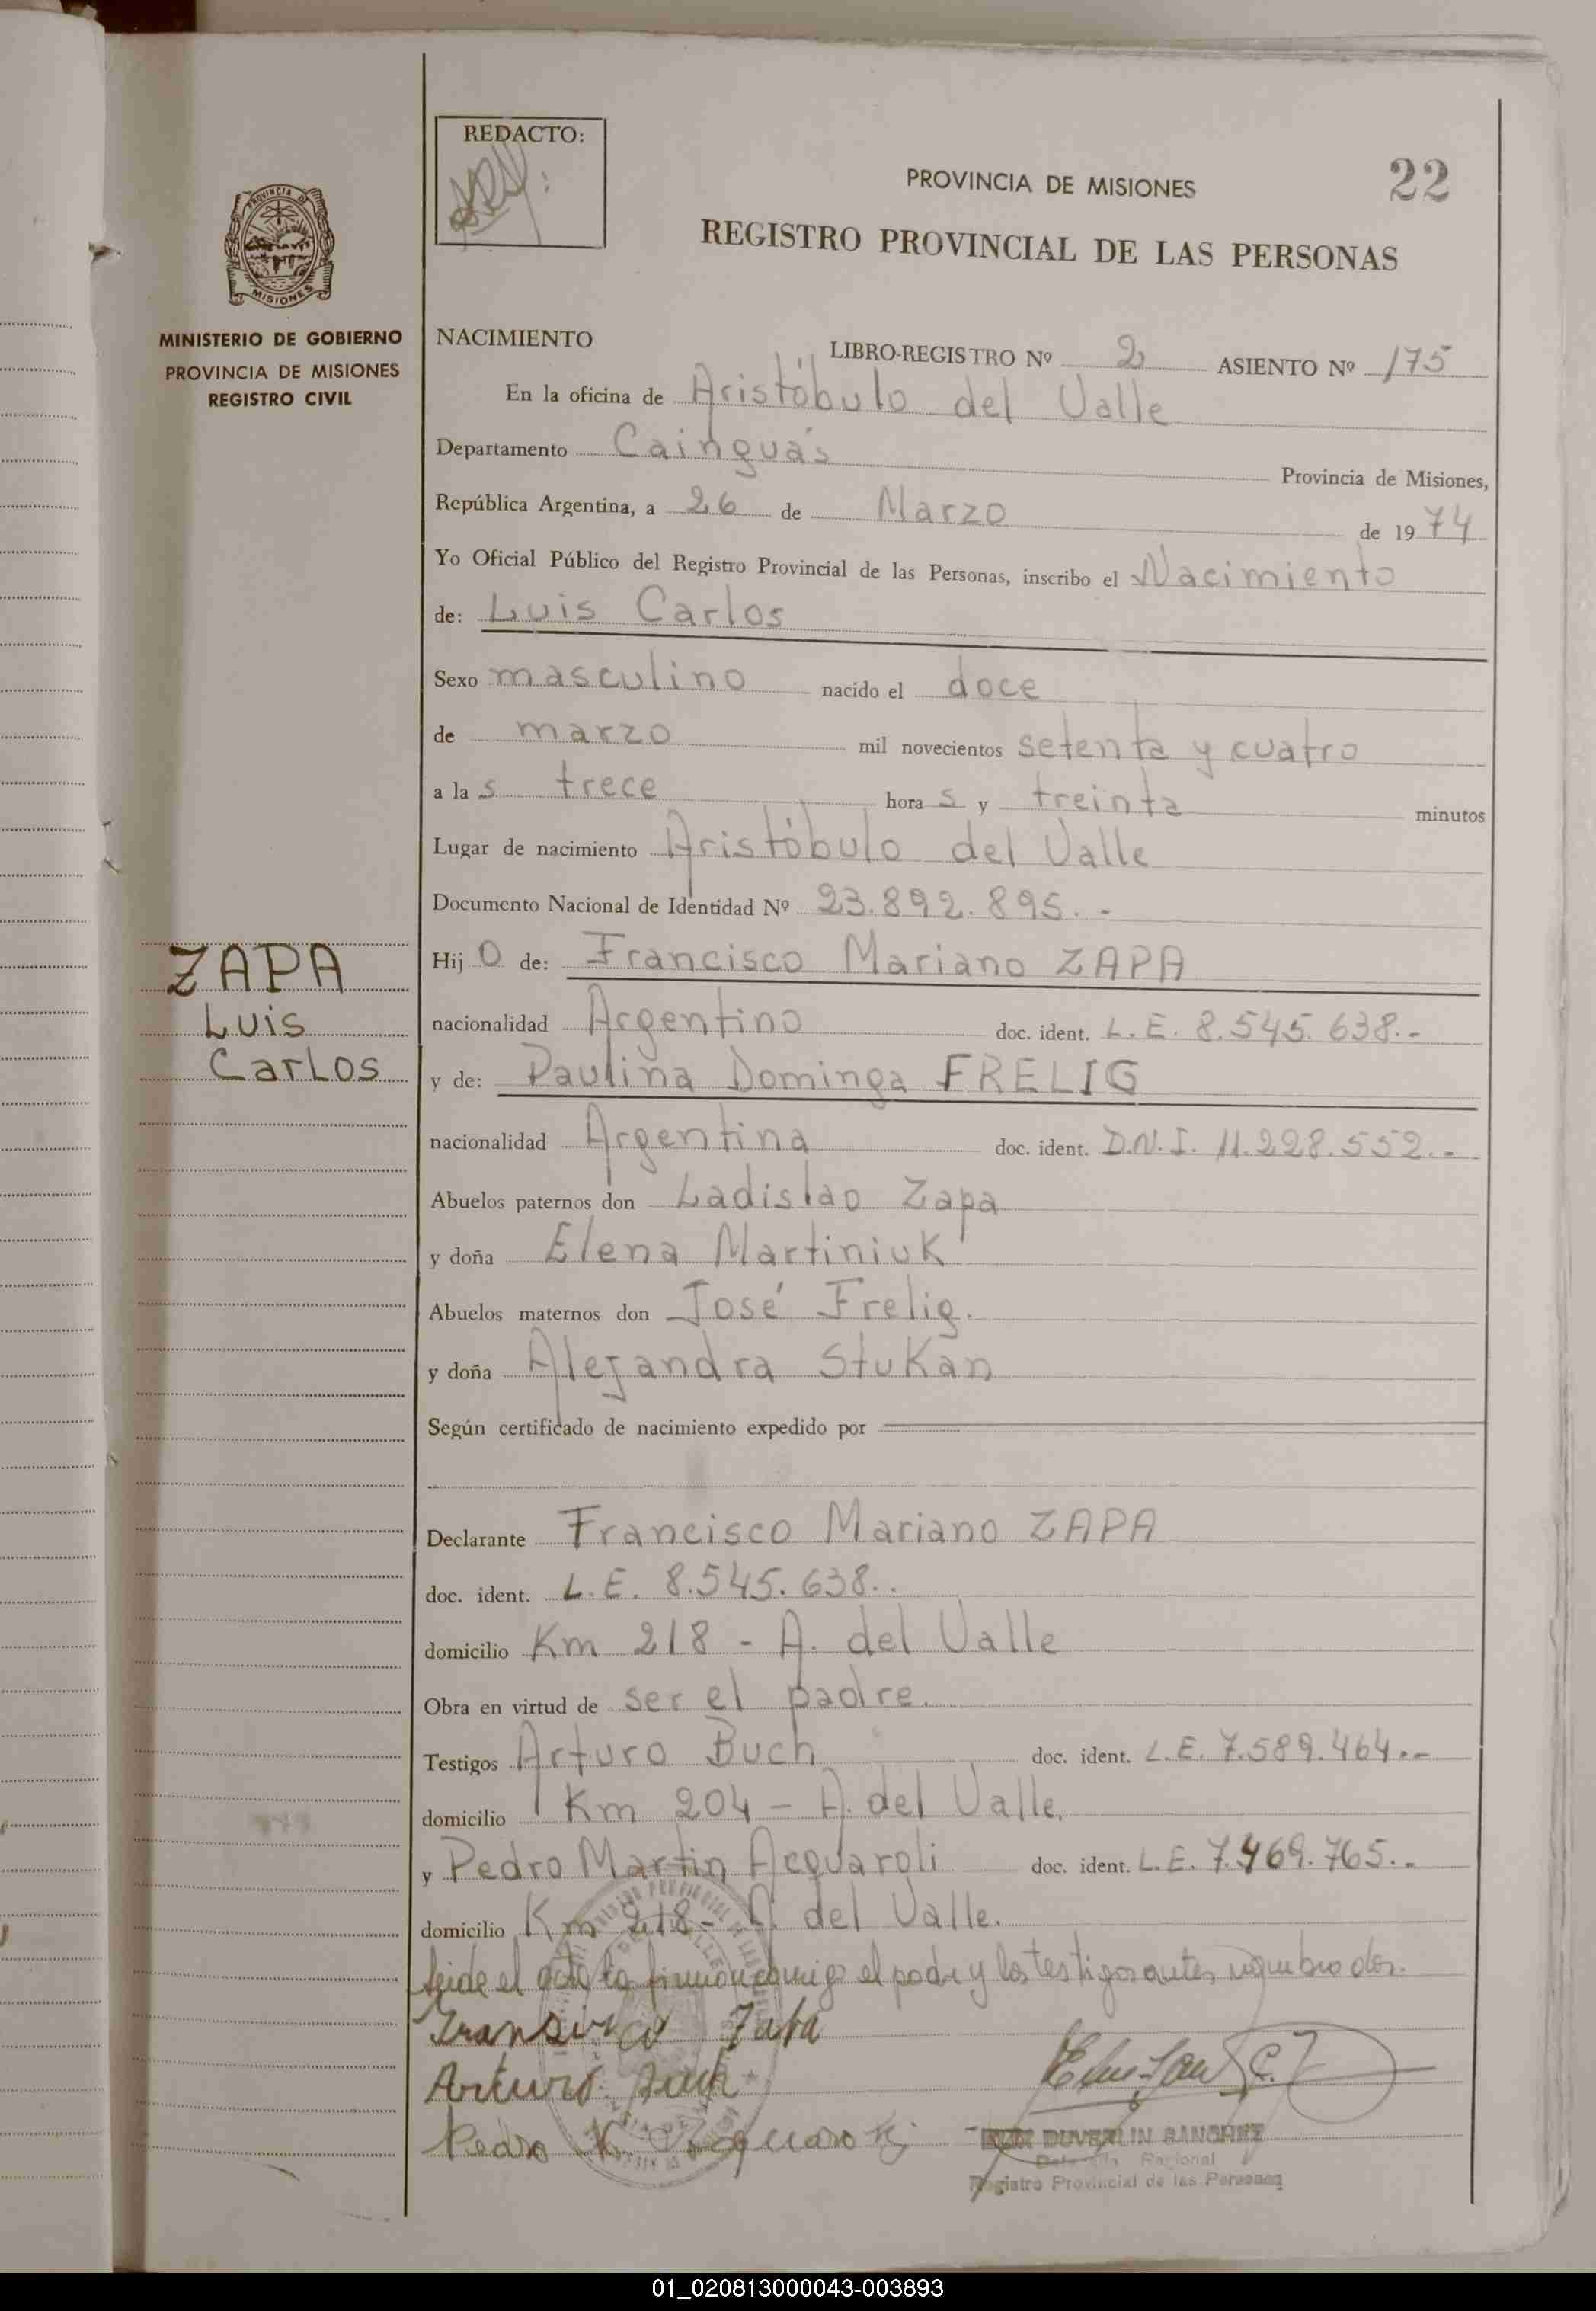 REDACTO:
PROVINCIA DE MISIONES
22
REGISTRO PROVINCIAL DE LAS PERSONAS
PROVINCIA D
MISIONES
MINISTERIO DE GOBIERNO
PROVINCIA DE MISIONES
REGISTRO CIVIL
NACIMIENTO
LIBRO-REGISTRO Nº 2 ASIENTO Nº 175
En la oficina de Aristóbulo del Valle
Departamento Cainguás Provincia de Misiones,
República Argentina, a 26 de Marzo de 1974
Yo Oficial Público del Registro Provincial de las Personas, inscribo el Nacimiento
de: Luis Carlos
Sexo masculino nacido el doce
de marzo mil novecientos setenta y cuatro
a las trece horas y treinta minutos
Lugar de nacimiento Aristóbulo del Valle
Documento Nacional de Identidad Nº 23.892.895.-
ZAPA
Luis
Carlos
Hijo de: Francisco Mariano ZAPA
nacionalidad Argentino doc. ident. L.E. 8.545.638.-
y de: Paulina Dominga FRELIG
nacionalidad Argentina doc. ident. D.N.I. 11.228.552.-
Abuelos paternos don Ladislao Zapa
y doña Elena Martiniuk
Abuelos maternos don José Frelig.
y doña Alejandra Stukan
Según certificado de nacimiento expedido por
Declarante Francisco Mariano ZAPA
doc. ident. L.E. 8.545.638..
domicilio Km 218 - A. del Valle
Obra en virtud de ser el padre.
Testigos Arturo Buch doc. ident. L.E. 7.589.464.-
domicilio Km 204 - A. del Valle.
y Pedro Martin Acquaroli doc. ident. L.E. 7.469.765.-
domicilio Km 218 - A. del Valle.
leide el acta la firman conmigo el padre y los testigos antes nombrados.
Zapa
Arturo
Pedro
DUVERLIN SANCHEZ
Regional
Registro Provincial de las Personas
01_020813000043-003893